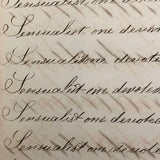 Sensualist one devote
Sensualist one devoted
Sensualist one devotes
Sensualist one devoted
Sensualist one devotes
Sensualist one devot